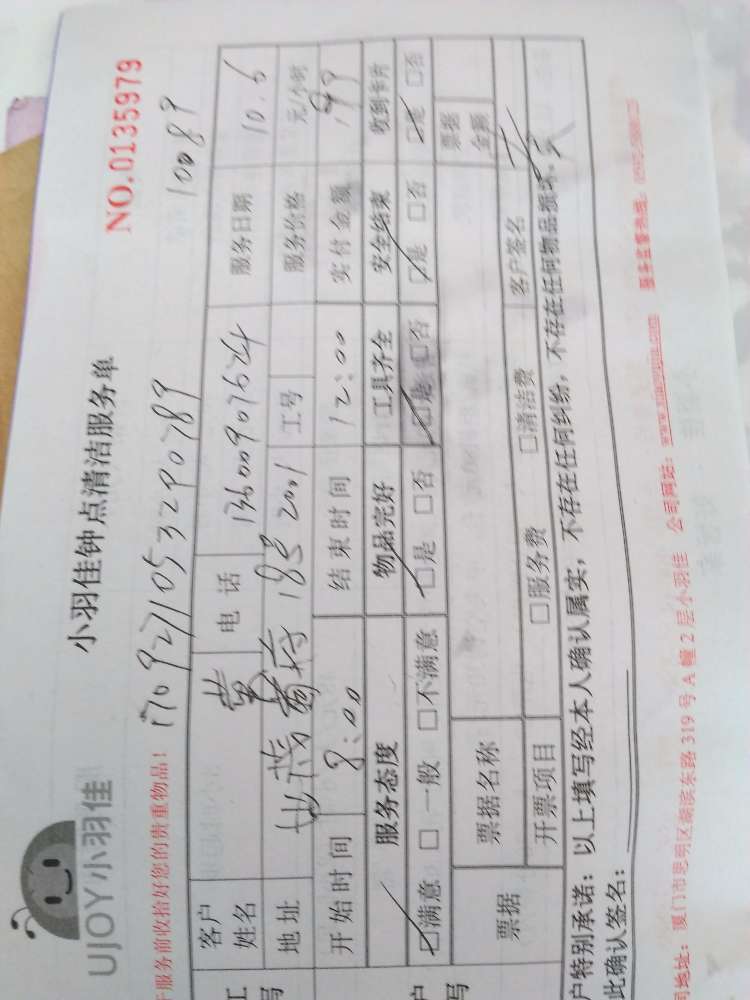 UJOY小羽佳
小羽佳钟点清洁服务单
NO.0135979
服务前收拾好您的贵重物品!
1709271053290789
10089
客户姓名 黄 电话 13600907624 服务日期 10.6
地址 18号2001 工号 服务价格 元/小时
开始时间 8:00 结束时间 12:00 实付金额 199
服务态度 物品完好 工具齐全 安全结束 收到卡片
☑满意 □一般 □不满意 ☑是 □否 ☑是 □否 ☑是 □否 ☑是 □否
票据 票据名称 票据金额
开票项目 □服务费 □清洁费 客户签名
户特别承诺:以上填写经本人确认属实,不存在任何纠纷,不存在任何物品损坏。
此确认签名:
地址:厦门市思明区湖滨东路319号A幢2层小羽佳 公司网站: 服务监督热线: